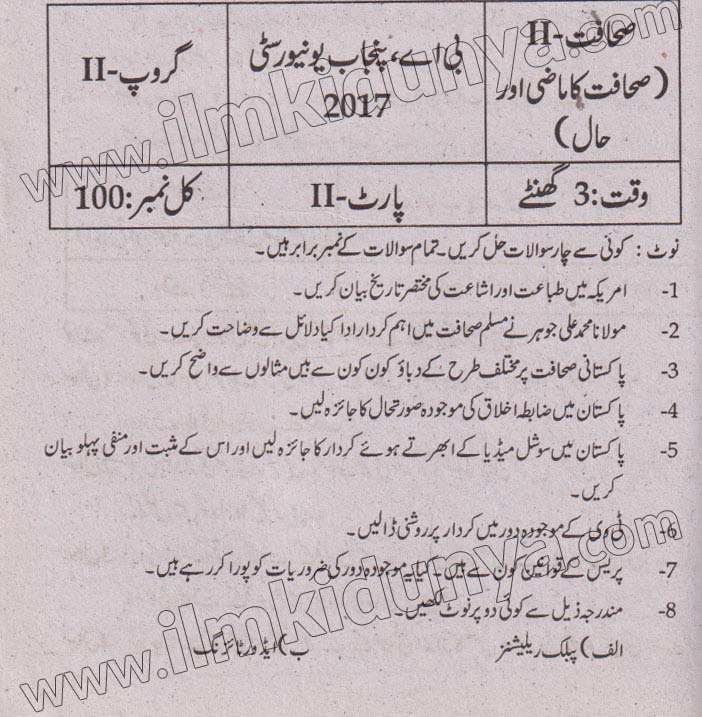 صحافت-II
(صحافت کا ماضی اور
حال)
بی اے، پنجاب یونیورسٹی
2017
گروپ-II
وقت: 3 گھنٹے
پارٹ-II
کل نمبر: 100
نوٹ: کوئی سے چار سوالات حل کریں۔ تمام سوالات کے نمبر برابر ہیں۔
1- امریکہ میں طباعت اور اشاعت کی مختصر تاریخ بیان کریں۔
2- مولانا محمد علی جوہر نے مسلم صحافت میں اہم کردار ادا کیا دلائل سے وضاحت کریں۔
3- پاکستانی صحافت پر مختلف طرح کے دباؤ کون کون سے ہیں مثالوں سے واضح کریں۔
4- پاکستان میں ضابطہ اخلاق کی موجودہ صورتحال کا جائزہ لیں۔
5- پاکستان میں سوشل میڈیا کے ابھرتے ہوئے کردار کا جائزہ لیں اور اس کے مثبت اور منفی پہلو بیان
کریں۔
6- ٹی وی کے موجودہ دور میں کردار پر روشنی ڈالیں۔
7- پریس کے قوانین کون سے ہیں۔ کیا یہ موجودہ دور کی ضروریات کو پورا کر رہے ہیں۔
8- مندرجہ ذیل سے کوئی دو پر نوٹ لکھیں۔
الف) پبلک ریلیشنز ب) ایڈورٹائزنگ
www.ilmkidunya.com
www.ilmkidunya.com